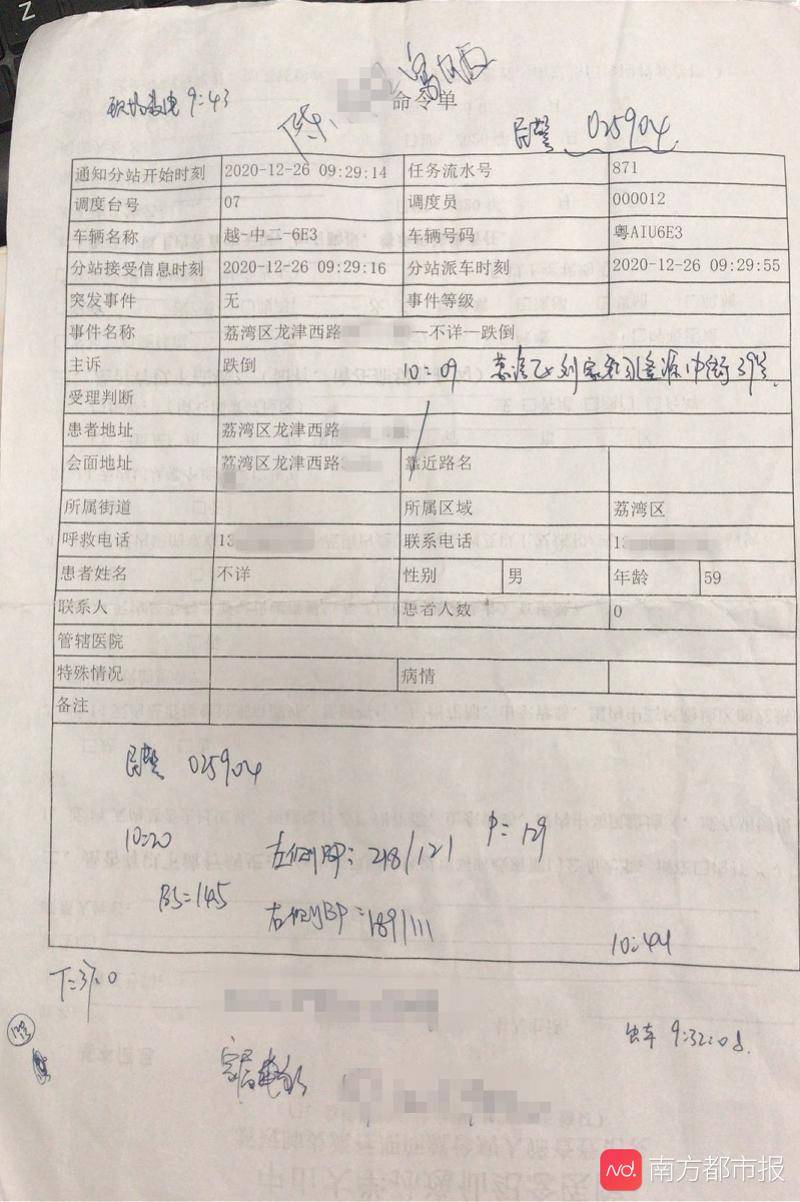 Z
9:43
命令单
民警 025904
通知分站开始时刻 2020-12-26 09:29:14 任务流水号 871
调度台号 07 调度员 000012
车辆名称 越-中二-6E3 车辆号码 粤AIU6E3
分站接受信息时刻 2020-12-26 09:29:16 分站派车时刻 2020-12-26 09:29:55
突发事件 无 事件等级
事件名称 荔湾区龙津西路 —不详—跌倒
主诉 跌倒 10:09
受理判断
患者地址 荔湾区龙津西路
会面地址 荔湾区龙津西路 靠近路名
所属街道 所属区域 荔湾区
呼救电话 13 联系电话 13
患者姓名 不详 性别 男 年龄 59
联系人 患者人数 0
管辖医院
特殊情况 病情
备注
民警 025904
10:20 左侧BP: 218/121 P=129
BS=145 右侧BP: 189/111
10:44
T=37.0
出车 9:32:08
南方都市报